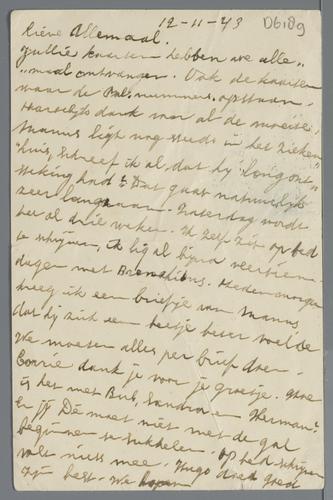 12-11-43 D6189
Lieve Allemaal.
Jullie kaarten hebben we alle „
„maal ontvangen. Ook de kaarten
waar de Pal. nummers opstaan.
Hartelijk dank voor al de moeite.
Mannus ligt nog steeds in het zieken
huis, schreef ik al, dat hij „longont„
steking had? Dat gaat natuurlijk
zeer langzaam. Zaterdag wordt
het al drie weken. Ik zelf zit op bed
te schrijven, ik lig al bijna veertien
dagen met . Hedenmorgen
kreeg ik een briefje van Mannus,
dat hij zich een beetje beter voelde
We moeten alles per brief doen.
Corrie dank je voor je groetje. Hoe
is het met Bub, Sandra en Herman?
En jij Dé moet niet met de gal
beginnen te sukkelen. Op bed schrijven
valt niets mee. Hugo doet goed
zijn best. We hopen